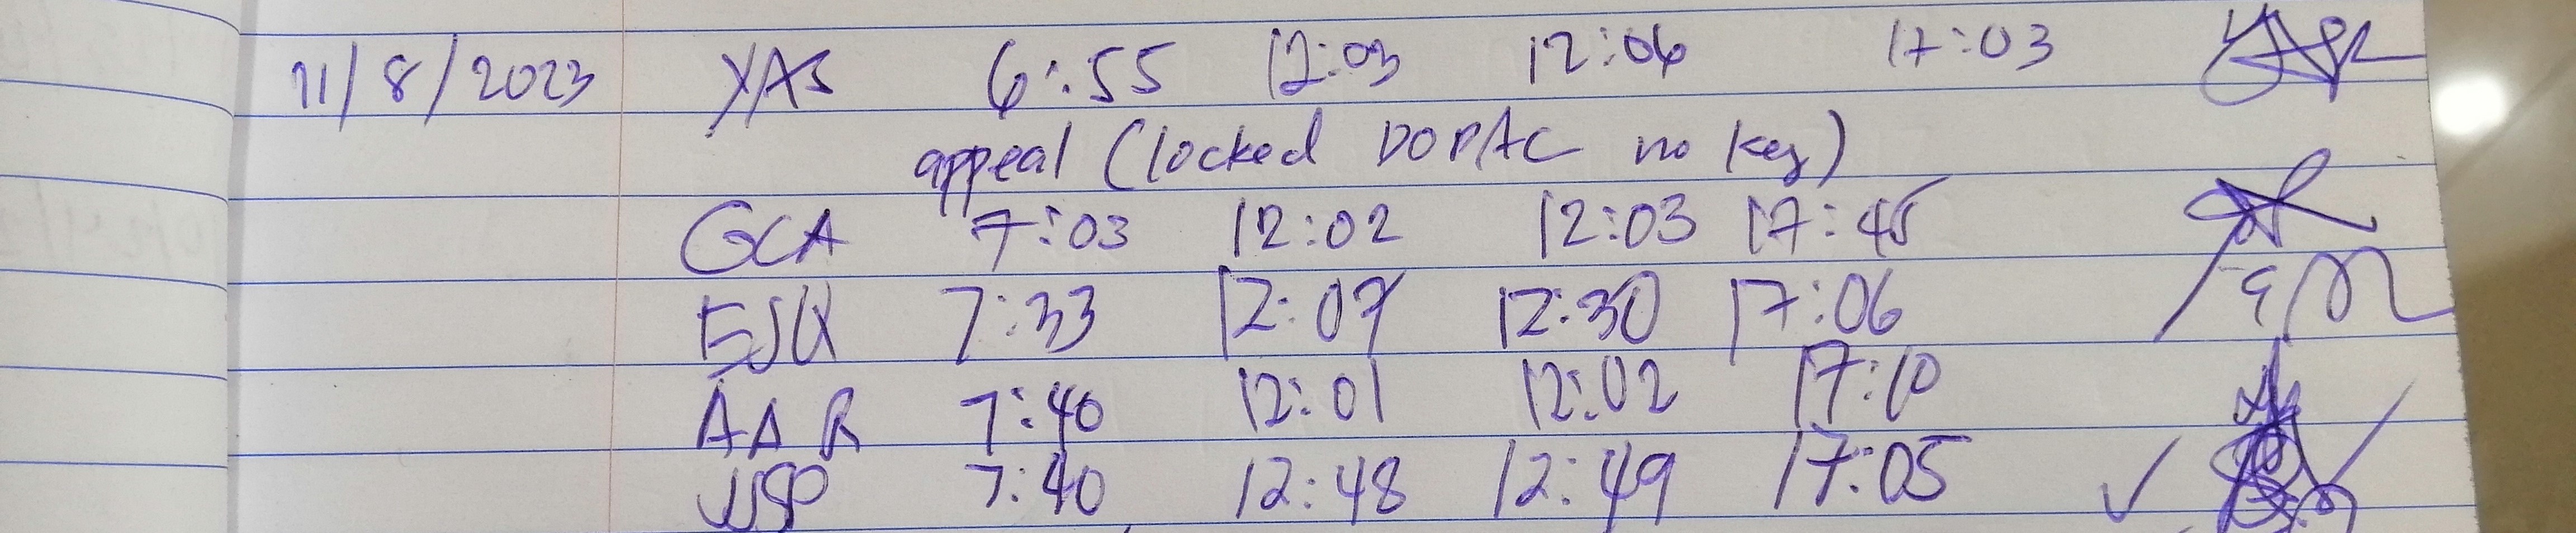 11/8/2023 YAS 6:55 12:03 12:06 17:03
appeal (locked DOPAC no key)
GCA 7:03 12:02 12:03 17:45
7:33 12:07 12:30 17:06
AAR 7:40 12:01 12:02 17:10
7:40 12:48 12:49 17:05